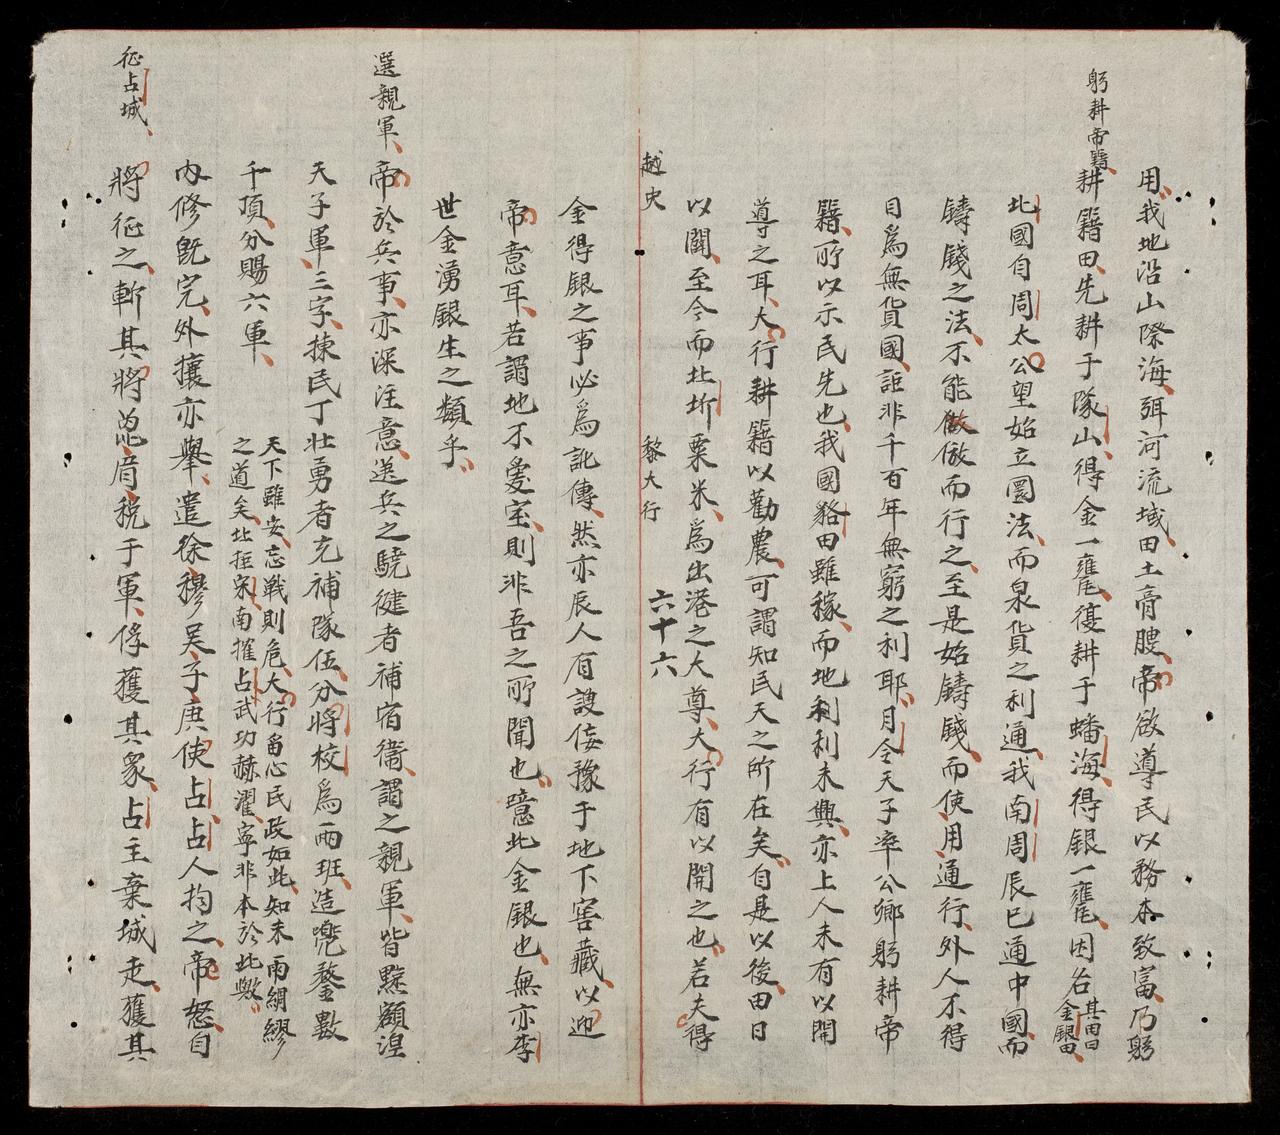 躬耕帝籍
用我地沿山際海、弭河流域、田土膏腴、帝啟導民以務本致富、乃躬
耕籍田、先耕于隊山、得金一甕、復耕于蟠海、得銀一甕、因名其田曰金銀田、
北國自周太公望始立圜法、而泉貨之利通、我南周辰已通中國、而
鑄錢之法、不能做倣而行之、至是始鑄錢、而使用通行、外人不得
目爲無貨國、詎非千百年無窮之利耶、月令天子率公鄉躬耕帝
籍、所以示民先也、我國貉田雖稼、而地利未興、亦上人未有以開
導之耳、大行耕籍以勸農、可謂知民天之所在矣、自是以後、田日
以闢、至今而北圻粟米、爲出港之大尊、大行有以開之也、若夫得
越史 黎大行 六十六
金得銀之事、必爲訛傳、然亦辰人有設倿豫于地下窖藏、以迎
帝意耳、若謂地不愛宝、則非吾之所聞也、噫此金銀也、無亦李
世金湧銀生之類乎、
選親軍、
帝於兵事、亦深注意、送兵之驍健者補宿衞、謂之親軍、皆黥額涅
天子軍、三字、揀民丁壯勇者充補隊伍、分將校爲兩班、造兜鍪數
千頂、分賜六軍、
天下雖安、忘戰則危、大行畱心民政如此、知未雨綢繆
之道矣、北拒宋、南摧占、武功赫濯、寧非本於此歟、
內修既完、外攘亦舉、遣徐穆吳子庚使占、占人拘之、帝怒自
征占城、
將征之、斬其將䓟眉稅于軍、俘獲其衆、占主棄城走、獲其